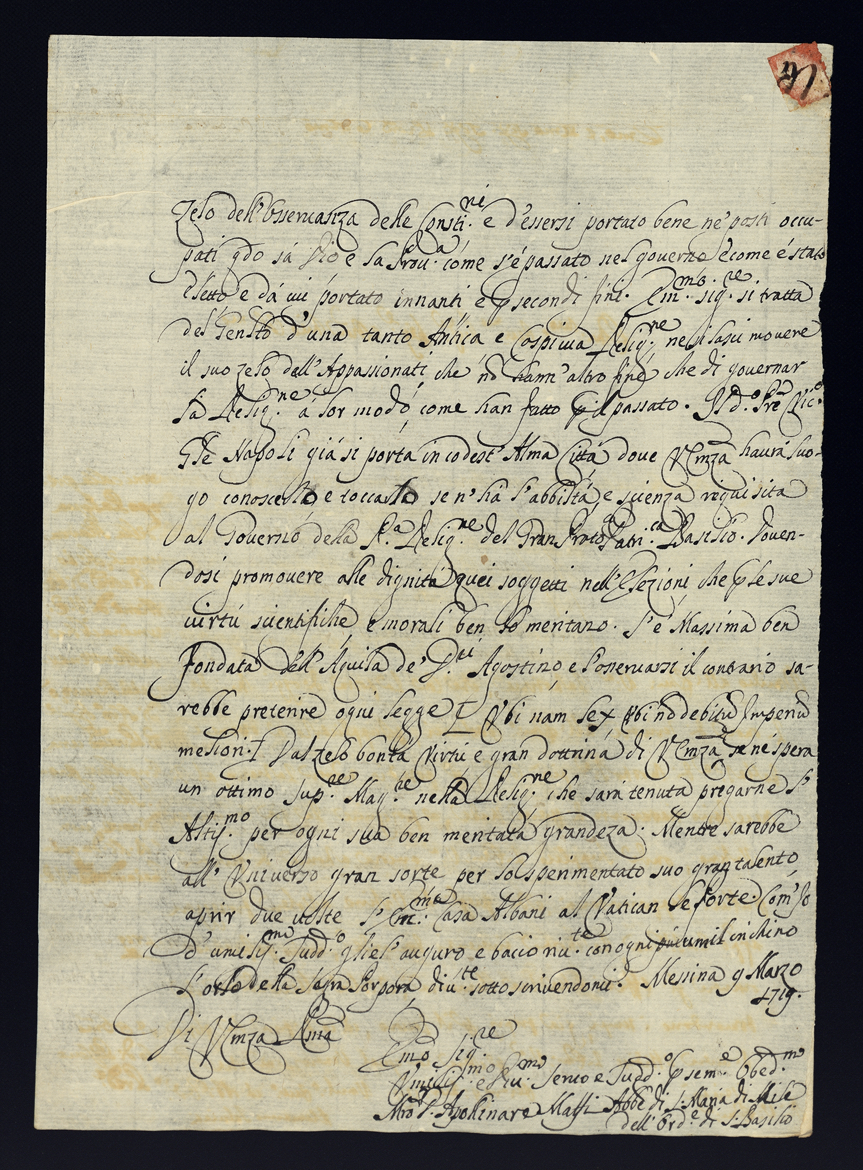 Zelo dell'Osservanza delle Consti.ni e d'essersi portato bene ne' posti occu-
pati qdo sà Dio e la Prou.a cóme s'é passato nel governo e come é stato
eletto e dá cui portato innanti e p secondi fini. Em.mo sig.re si tratta
del d'una tanto Antica e Cospicua Relig.ne ne si lasci movere
il suo zelo dall'Appassionati, che nō hann'altro fine che di governar
la Relig.ne à lor modo come han fatto p il passato. Il d.o Pre Vic.o
Gle Napoli giá si porta in codest'Alma Cittá dove VEmza haurá luo-
go conoscerlo e toccarlo se n'ha l'abbiltá e scienza requisita
al Governo della Relig.ne del Gran Proto Patri.ca Basilio. Doven-
dosi promovere alle dignitá quei soggetti nell'Elezioni che p le sue
virtú scientifiche e morali ben lo meritano. L'é Massima ben
fondata dell'Aquila de' D.ri Agostino e l'osservarsi il contrario sa-
rebbe preterire ogni legge Vbi nám lex Vbi nō debitū Imperiū
meliori. Dal zelo bontá Virtú e gran dottrina di VEmza se né spera
un ottimo Sup.re Mag.re nella Relig.ne che sará tenuta pregarne l'
Altis.mo per ogni sua ben meritata grandeza. Mentre sarebbe
all'Vniverso gran sorte per lo sperimentato suo gran talento
aprir due volte l'Ec.ma Casa Albani al Vatican le Porte. Com'Io
d'umilis.mo Sudd.o gliel'auguro e bacio riv.te con ogni piú umil inchino
l'orlo della Sagra Porpora div.te sottoscrivendomi. Messina 9 Marzo
1719.
Di VEmza Rma
Emo Sig.re
Vmilis.mo e Div.mo Servo e Sudd.o p sem.e Obed.mo
D. Apollinare Massi Abbe di S. Maria di Mili
dell'Ord.e di S. Basilio